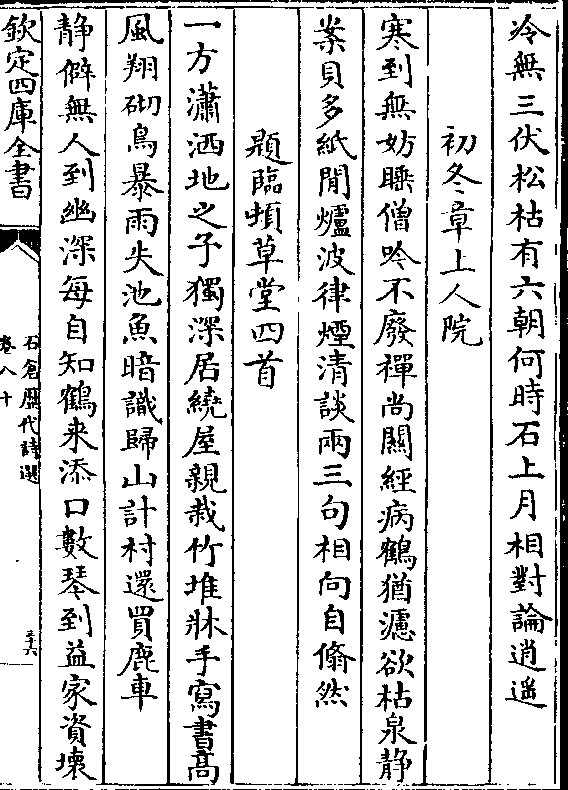 冷無三伏松枯有六朝何時石上月相對論逍遥
初冬章上人院
寒到無妨睡僧吟不廢禪尚關經病鶴猶濾欲枯泉静
案貝多紙閒爐波律煙清談兩三句相向自翛然
題臨頓草堂四首
一方瀟洒地之子獨深居繞屋親栽竹堆牀手寫書髙
風翔砌鳥暴雨失池魚暗識歸山計村還買鹿車
静僻無人到幽深每自知鶴来添口數琴到益家資壊
欽定四庫全書
石倉歴代詩選
卷八十
三十六